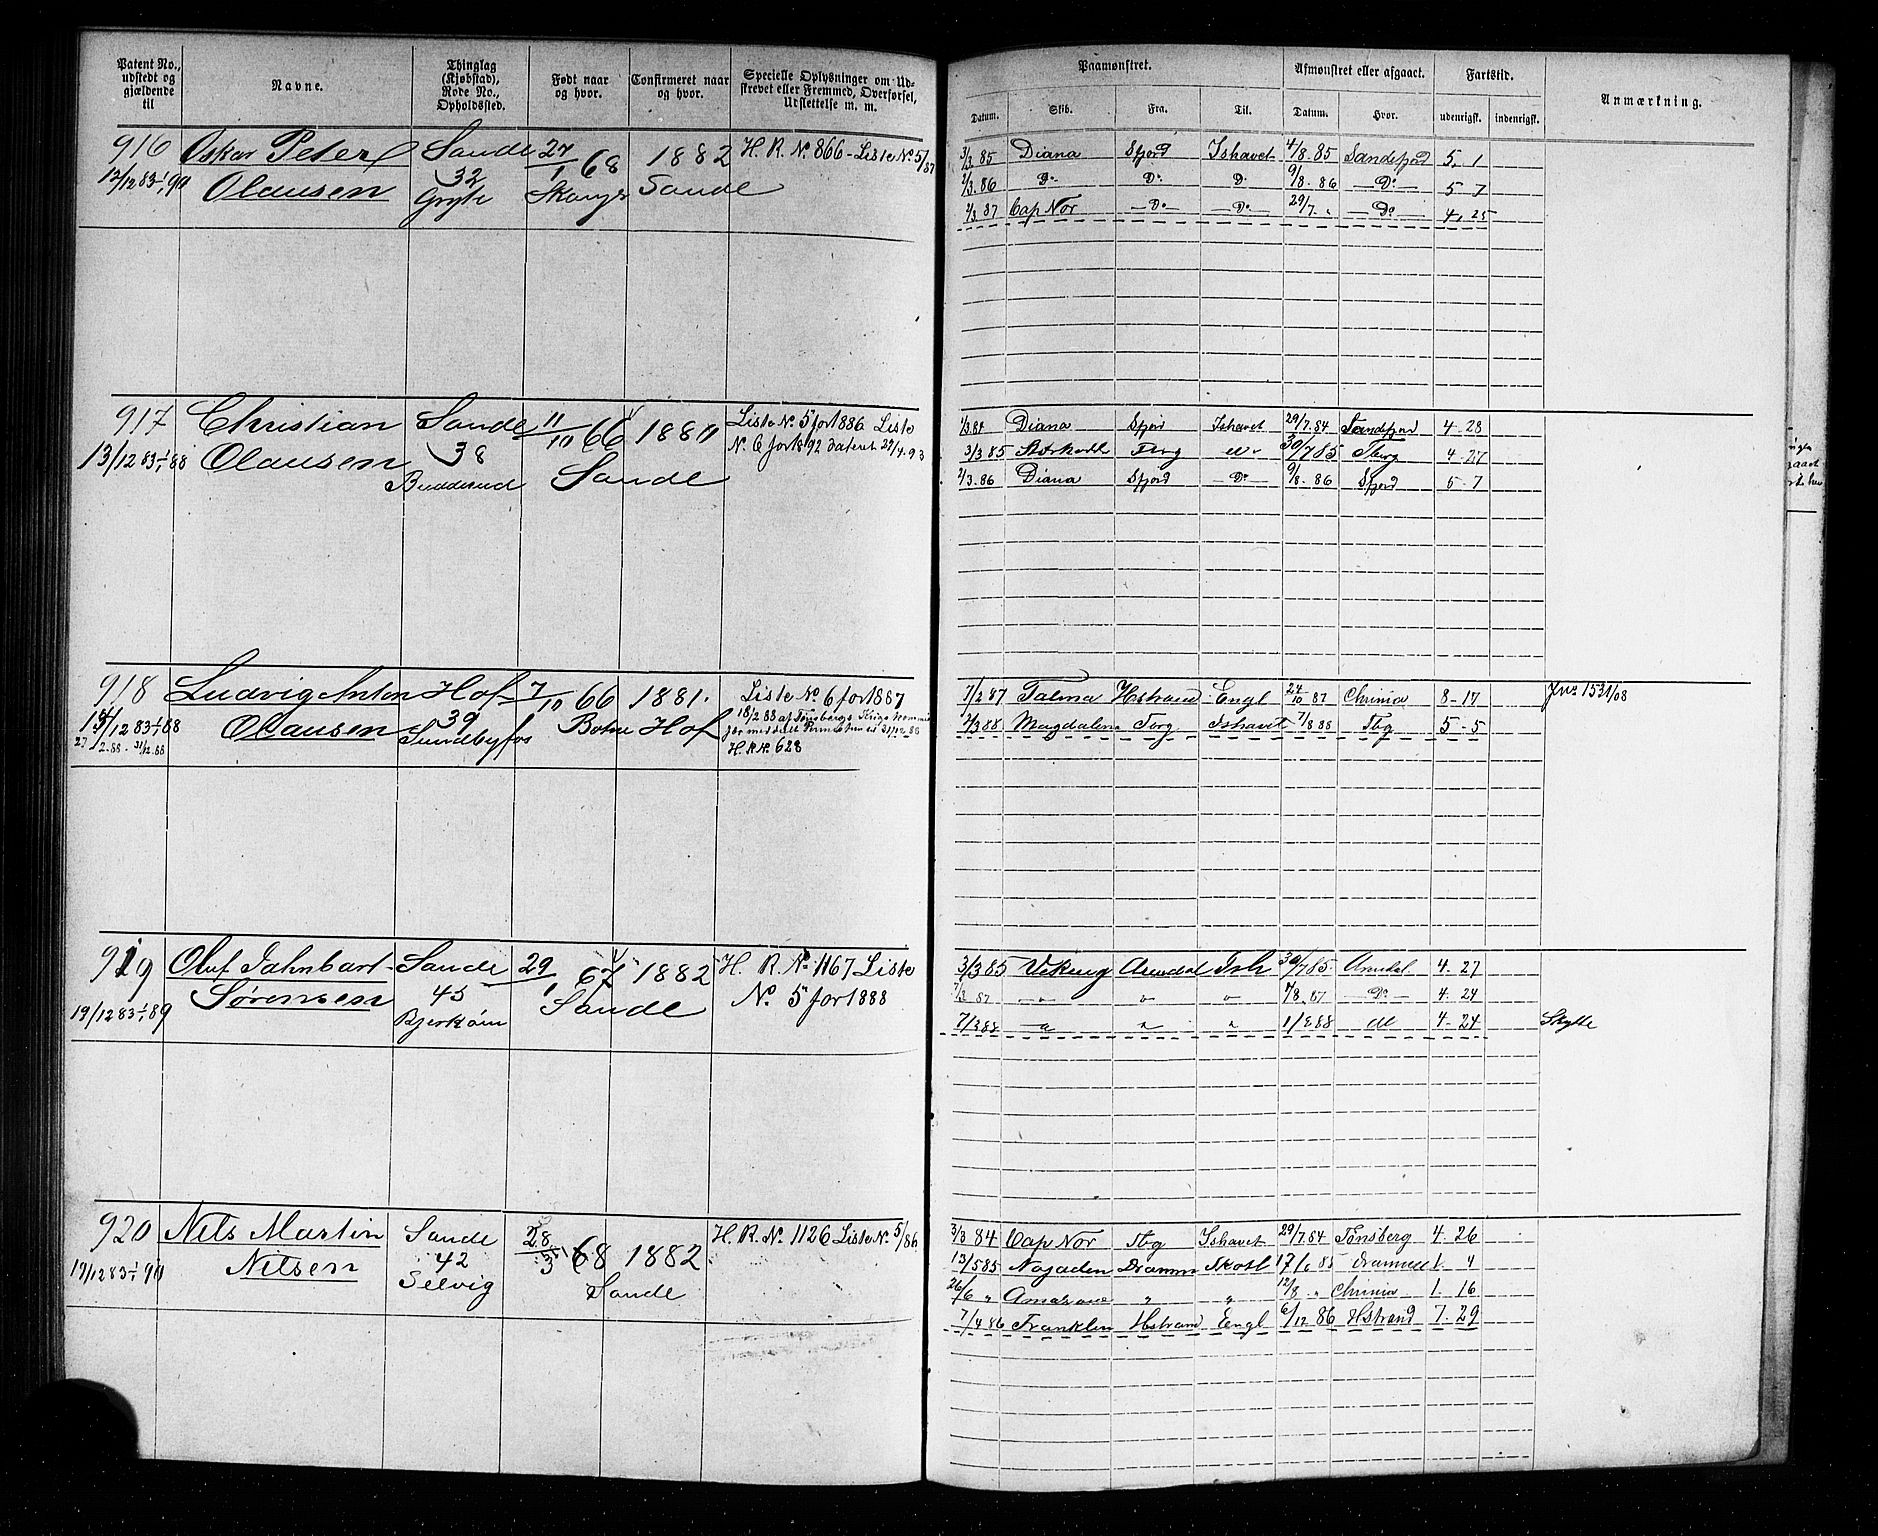 Patent No., udstedt og gjældende til
Navne.
Thinglag (Kjøbstad), Rode No., Opholdssted.
Født naar og hvor.
Confirmeret naar og hvor.
Specielle Oplysninger om Udstrevet eller Fremmed, Overførsel, Udslettelse m. m.
Paamønstret.
Afmønstret eller afgaaet.
Fartstid.
Anmærkning.
Datum. Skib. Fra. Til. Datum. Hvor. udenrigsk. indenrigsk.
916 Oskar Peter Sande 27/1 68 1882 H. R. No. 866 - Liste No 5/87
12/12 83 1/1 90 Olausen 32 Sande
Gryte
3/3 85 Diana Sfjord Ishavet 4/8 85 Sandefjord 5. 1
2/3. 86 Do Do D. 9/8. 86 Do 5 7
2/3 87 Cap Nor Do Do 29/7 " Do 4. 25
917 Christian Sande 11/10 66 1880 Liste No. 5 for 1886 Liste
13/12 83 1/1 88 Olausen 38 Sande No. 6 for 1892 dateret 27/4-93
1/3 84 Diana Sfjor Ishavet 29/7. 84 Sandefjord 4. 28
3/3 85 Tbrg 30/7 85 Tbrg 4. 27
2/3. 86 Diana Sfjord Do 9/8. 86 Sfjord 5. 7
918 Ludvig Anton Hof 7/10 66 1881. Liste No. 6 for 1887
13/12 83 1/1 88 Olausen 39 Hof
Sundbyfos
H. R. No. 628
7/2 87 Talma Hstrand Engl 24/10 87 Chrinia 8-17 Jno 1531/08
7/3 88 Magdalena Tbrg Ishavet 7/8 88 Tbg 5-5
919 Oluf Dahnbart Sande 29/1 67 1882 H. R. No. 1167 Liste
19/12 83 1/1 89 Sørensen 45 Sande No. 5 for 1888
3/3 85 Viking Arendal Ish 30/7 85 Arndal 4. 27
7/3 87 " " " 7/8. 87 Do 4. 24
7/3 88 " " " 1/8 88 do 4. 24 Skytte
920 Nils Martin Sande 28/3 68 1882. H. R. No. 1126 Liste No. 5/86
19/12 83 1/1 90 Nilsen 42 Sande
Selvig
3/3 84 Cap Nor Tbg Ishavet 29/7. 84 Tønsberg 4. 26
13/5 85 Najaden Dramm Skotl 17/6 85 Drammen 1. 4
26/6 " " " 12/8 " Chrinia 1. 16
7/4 86 Franklin Hstrand Engl 6/12 86 Hstrand 7. 29